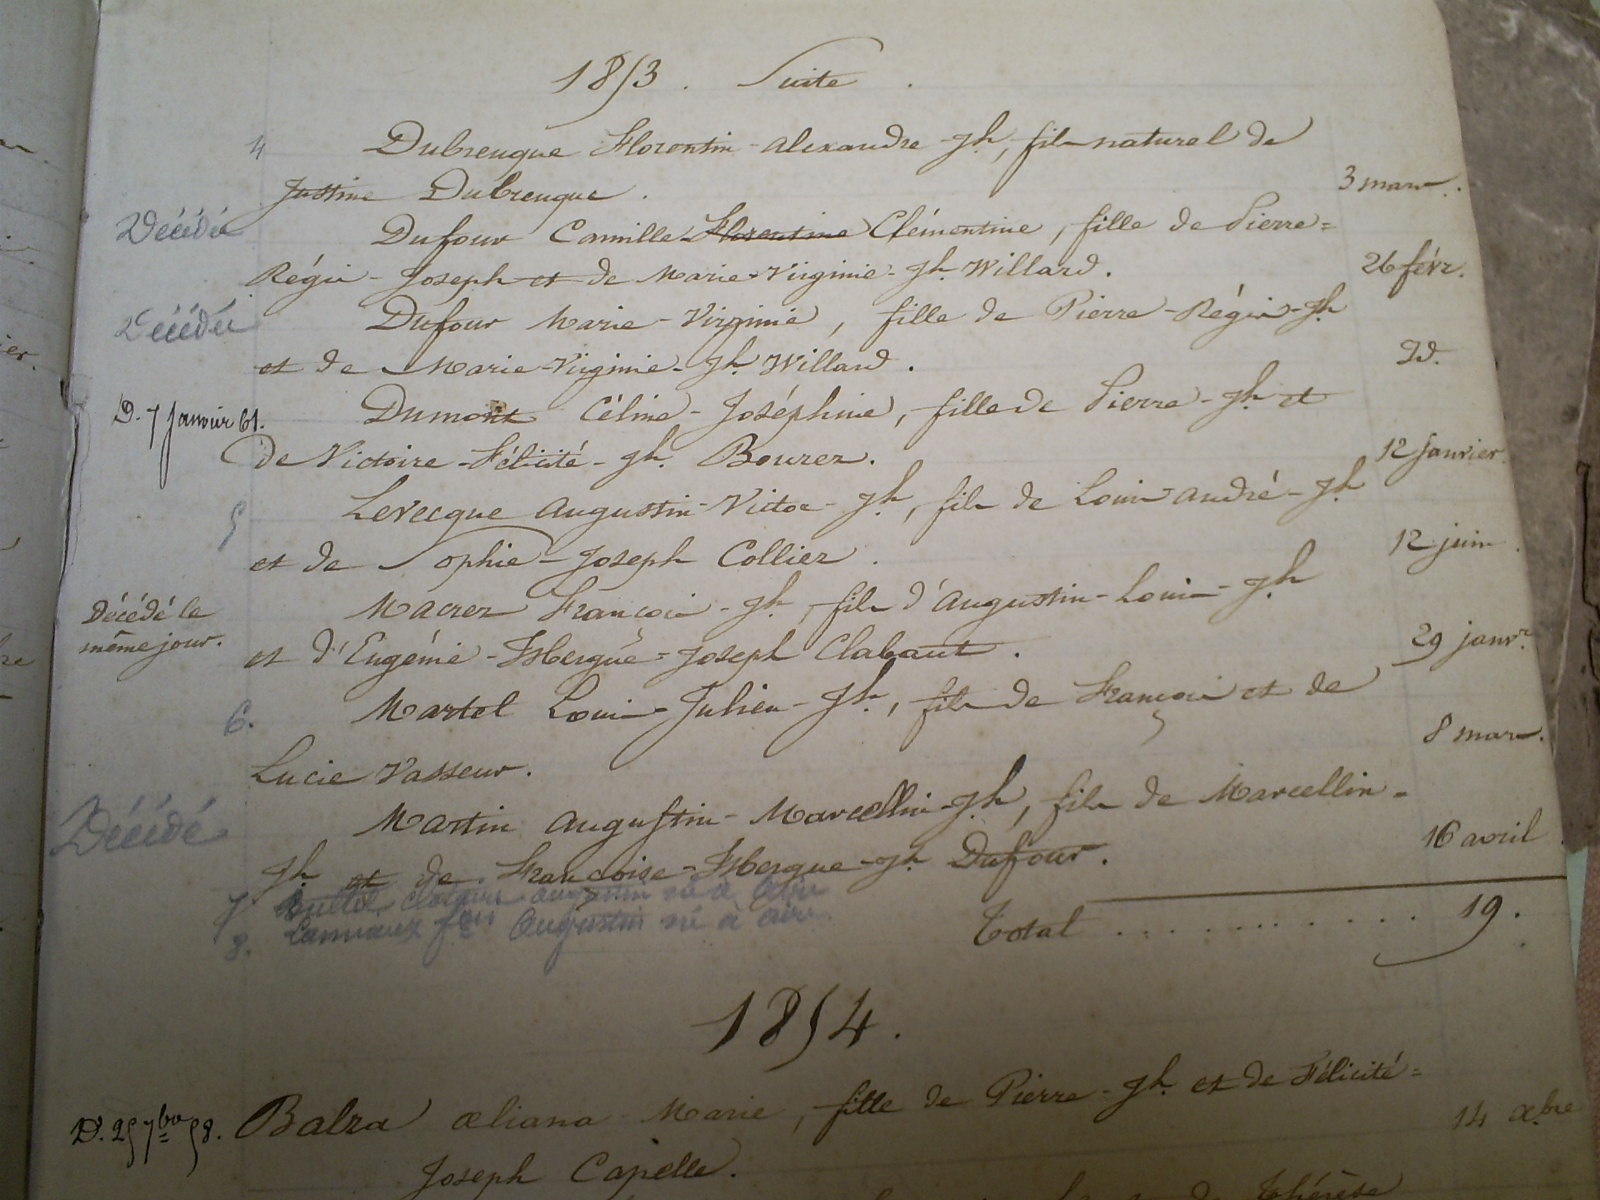 1853. Suite.
4 Dubreuque Florentin-Alexandre-Jh, fils naturel de
Justine Dubreuque. 3 mars.
Décédé Dufour Camille Florentine Clémentine, fille de Pierre=
Régis-Joseph et de Marie-Virginie-Jh. Willard. 26 févr.
Décédée Dufour Marie-Virginie, fille de Pierre-Régis-Jh
et de Marie-Virginie-Jh. Willard. Id.
D. 7 Janvier 61. Dumont Céline-Joséphine, fille de Pierre-Jh et
de Victoire-Félicité-Jh. Bourez. 12 Janvier.
5 Levecque Augustin-Victor-Jh, fils de Louis André-Jh
et de Sophie-Joseph Collier. 12 juin.
Décédé le
même jour.
Macrez François-Jh, fils d'Augustin-Louis-Jh
et d'Eugénie-Isbergue-Joseph Clabaut. 29 janvr.
6. Martel Louis-Julien-Jh, fils de François et de
Lucie Vasseur. 8 mars.
Décédé Martin Augustin-Marcellin-Jh, fils de Marcellin-
Jh et de Françoise-Isbergue-Jh Dufour. 16 avril
7 augustin né à Aire
8. Lannaux fois Augustin né à aire.
Total . . . . . . . . . . . 19.
1854.
D. 25 7bre 58. Balza Æliana Marie, fille de Pierre-Jh. et de Félicité=
Joseph Capelle. 14 Xbre
de Thérèse